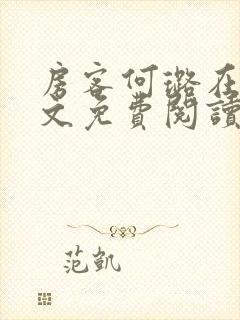 房客何璐在
文免費閱讀
范凱